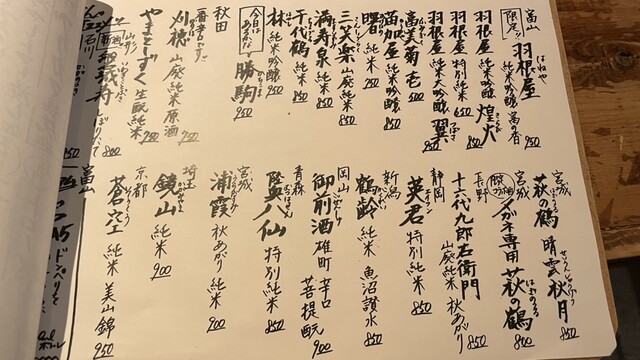 富山
限定ッ
羽根屋 純米吟醸 富の香 750
はねや
羽根屋 純米吟醸 煌火
きらび
羽根屋 特別純米 650
羽根屋 純米大吟醸 翼
つばさ
高美菊 壱 500
苗加屋 純米吟醸
曙 純米 750
三笑楽 山廃純米 850
満寿泉 純米 850
千代鶴 純米吟醸
林 純米吟醸 950
今日はあるかな
勝駒
秋田
一番辛口
刈穂 山廃純米原酒 750
やまとしずく 生酛純米 750
山形
石川
富山
宮城
萩の鶴 晴雲秋月 850
はぎのつる
宮城
メガネ専用 萩の鶴 800
はぎのつる
長野
十六代九郎右衛門 山廃純米 秋あがり 850
静岡
英君 特別純米 850
新潟
鶴齢 純米 魚沼讃水 850
岡山
御前酒 雄町 辛口 菩提酛 900
青森
陸奥八仙 特別純米 850
宮城
浦霞 秋あがり 純米 900
埼玉
鏡山 純米 900
京都
蒼空 純米 美山錦 950